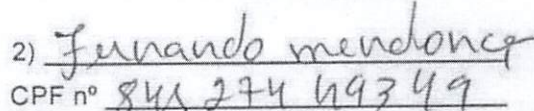 2) Fernando mendonça
CPF nº 841 274 49349